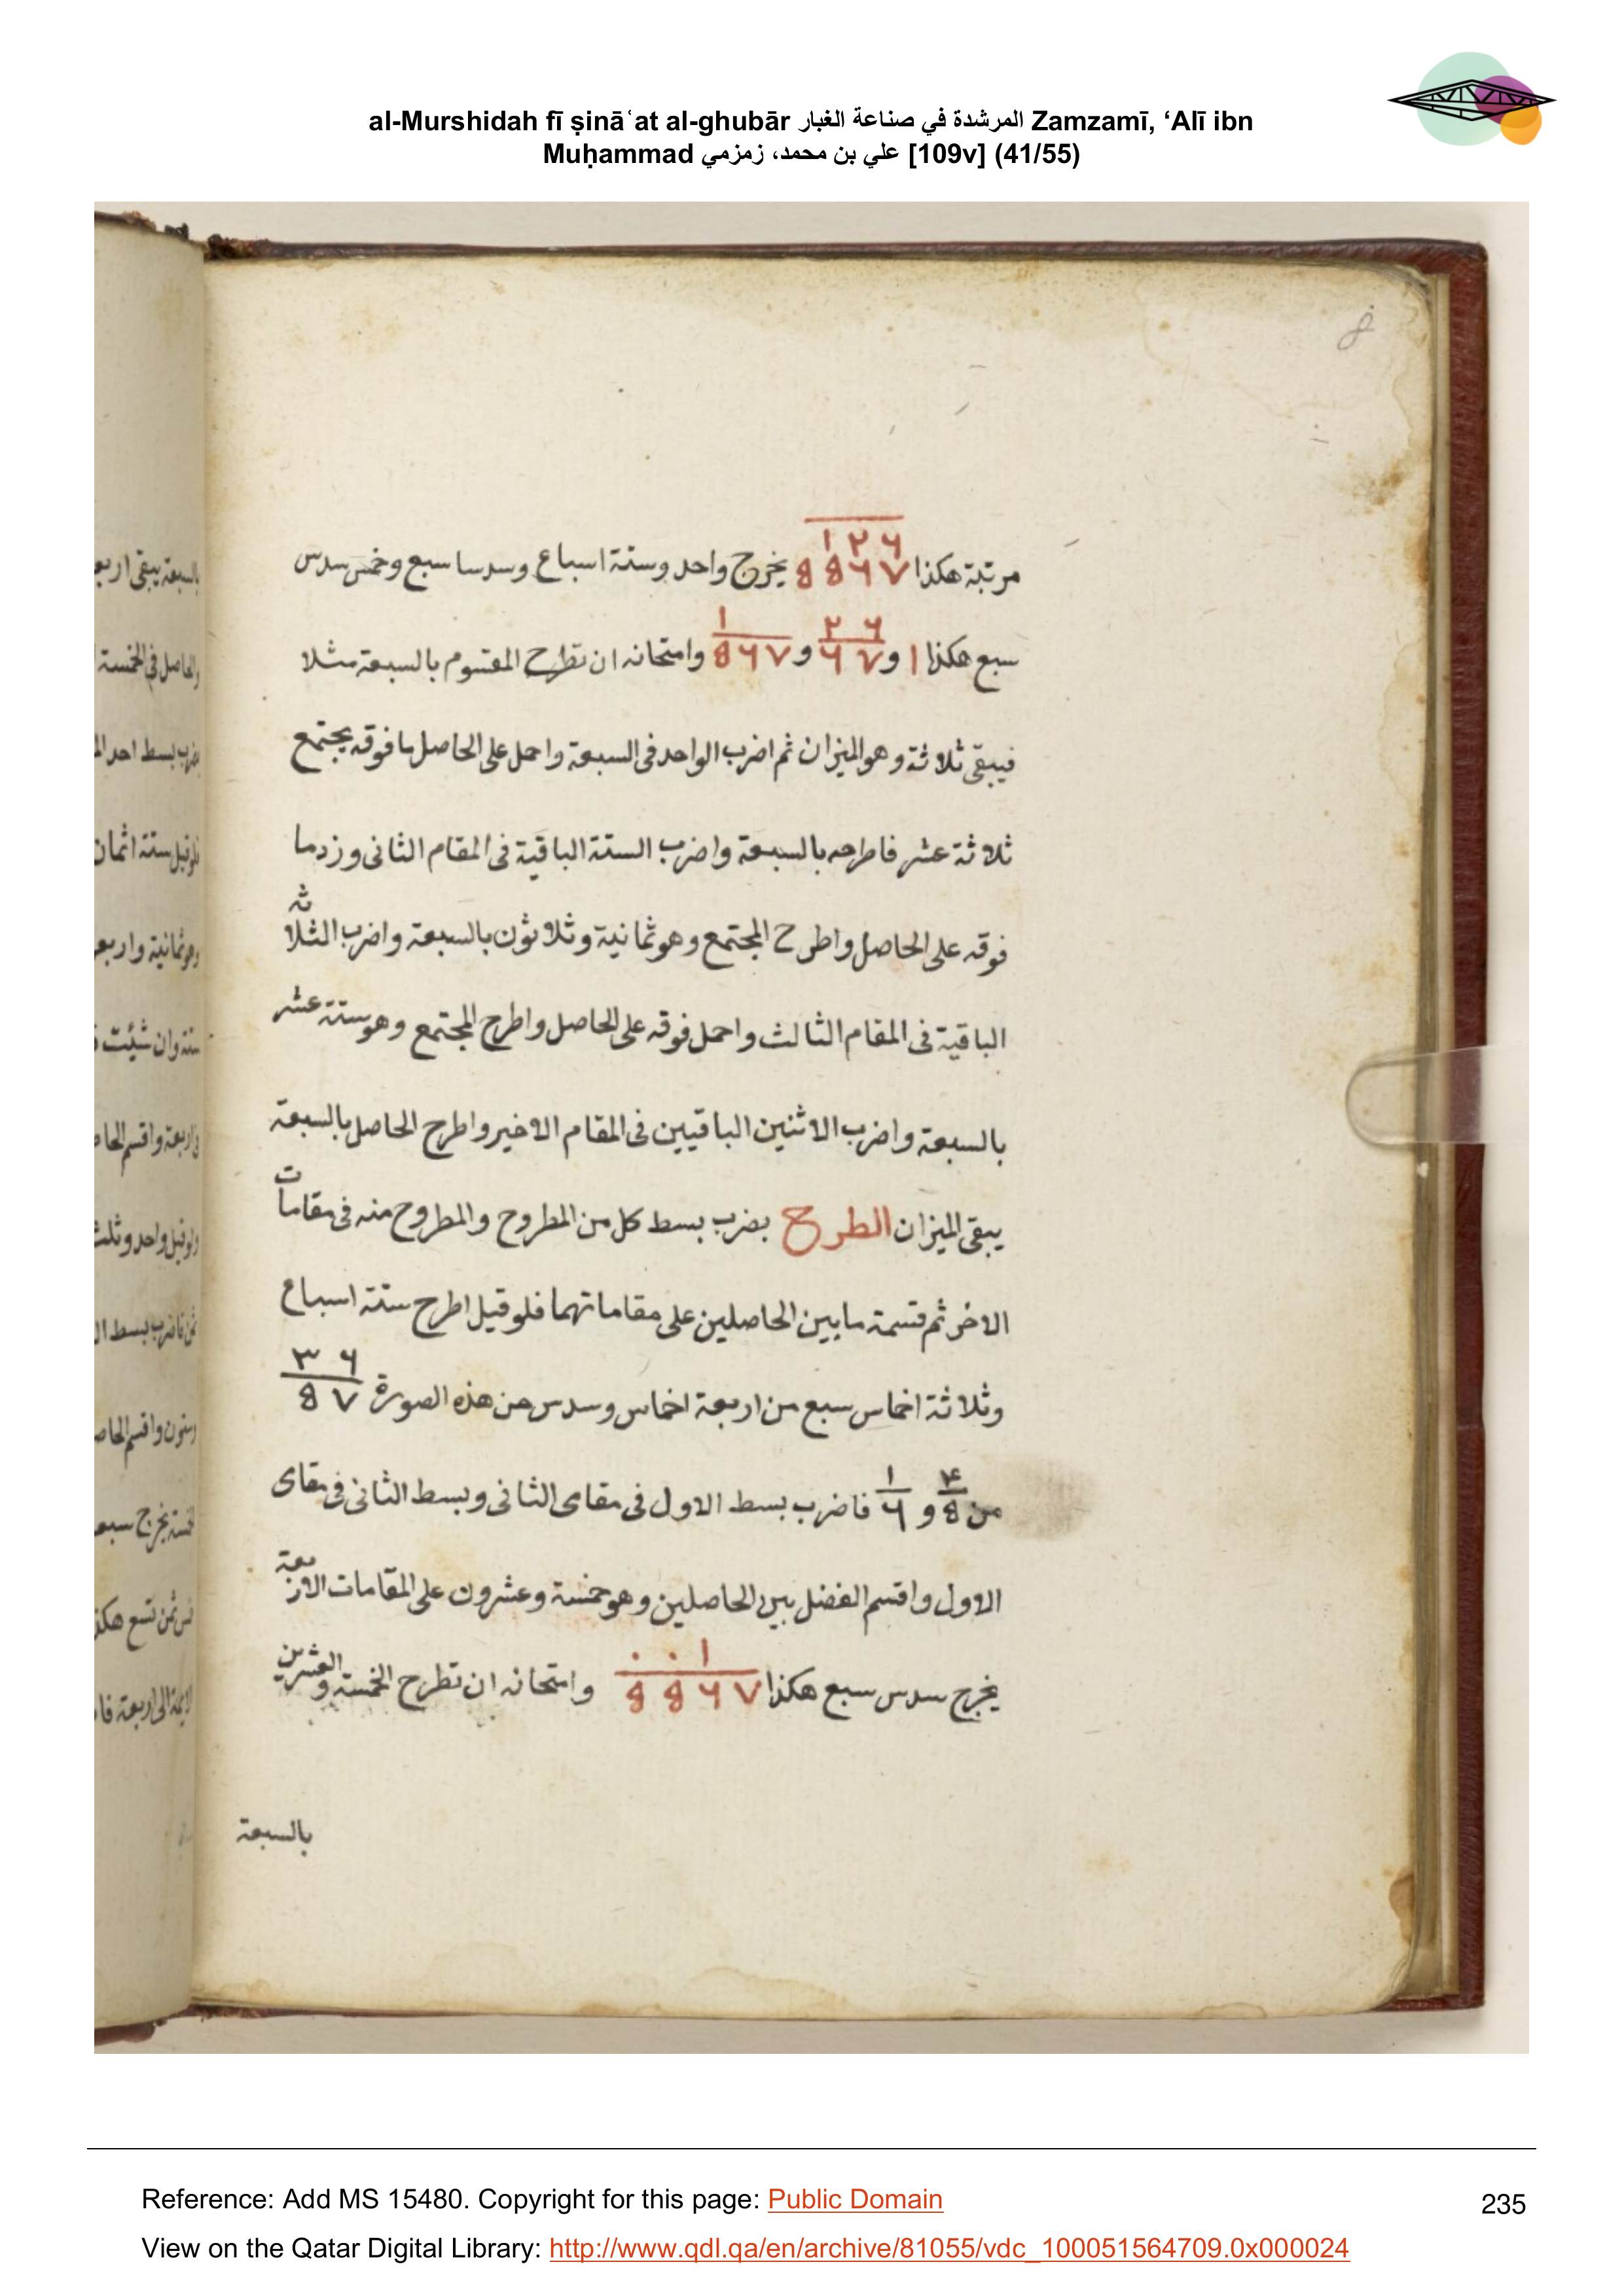 al-Murshidah fī ṣināʿat al-ghubār المرشدة في صناعة الغبار Zamzamī, ‘Alī ibn
Muḥammad علي بن محمد، زمزمي [109v] (41/55)
١ ٢ ٦
مرتبة هكذا ٧ ٦ 8 8 يخرج واحد وستة اسباع وسدسا سبع وخمس سدس
سبع هكذا ١ و ٦ ٢ / ٧ ٦ و ١ / ٧ ٦ 8 وامتحانه ان تطرح المقسوم بالسبعة مثلا
فيبقى ثلاثة وهو الميزان ثم اضرب الواحد فى السبعة واحمل على الحاصل ما فوقه يجتمع
ثلاثة عشر فاطرحه بالسبعة واضرب الستة الباقية فى المقام الثانى وزد ما
فوقه على الحاصل واطرح المجتمع وهو ثمانية وثلاثون بالسبعة واضرب الثلاثة
الباقية فى المقام الثالث واحمل فوقه على الحاصل واطرح المجتمع وهو ستة عشر
بالسبعة واضرب الاثنين الباقيين فى المقام الاخير واطرح الحاصل بالسبعة
يبقى الميزان الطرح بضرب بسط كل من المطروح والمطروح منه فى مقامات
الاخر ثم قسمة ما بين الحاصلين على مقاماتهما فلو قيل اطرح ستة اسباع
وثلاثة اخماس سبع من اربعة اخماس وسدس من هذه الصورة ٦ ٣ / ٧ 8
من ۴ / 8 و ١ / ٦ فاضرب بسط الاول فى مقامى الثانى وبسط الثانى فى مقامى
الاول واقسم الفضل بين الحاصلين وهو خمسة وعشرون على المقامات الاربعة
يخرج سدس سبع هكذا ١ . . / ٧ ٦ 8 8 وامتحانه ان تطرح الخمسة والعشرين
بالسبعة
Reference: Add MS 15480. Copyright for this page: Public Domain
235
View on the Qatar Digital Library: http://www.qdl.qa/en/archive/81055/vdc_100051564709.0x000024